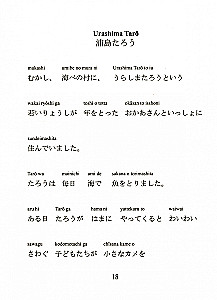 Urashima Tarō
浦島たろう
mukashi umibe no mura ni Urashima Tarō to iu
むかし、 海べの村に、 うらしまたろうという
wakai ryōshi ga toshi o totta okāsan to isshoni
若いりょうしが 年をとった おかあさんといっしょに
sundeimashita
住んでいました。
Tarō wa mainichi umi de sakana o torimashita
たろうは 毎日 海で 魚をとりました。
aru hi Tarō ga hama ni yattekuru to waiwai
ある日 たろうが はまに やってくると わいわい
sawagu kodomotachi ga chīsana kame o
さわぐ 子どもたちが 小さなカメを
18